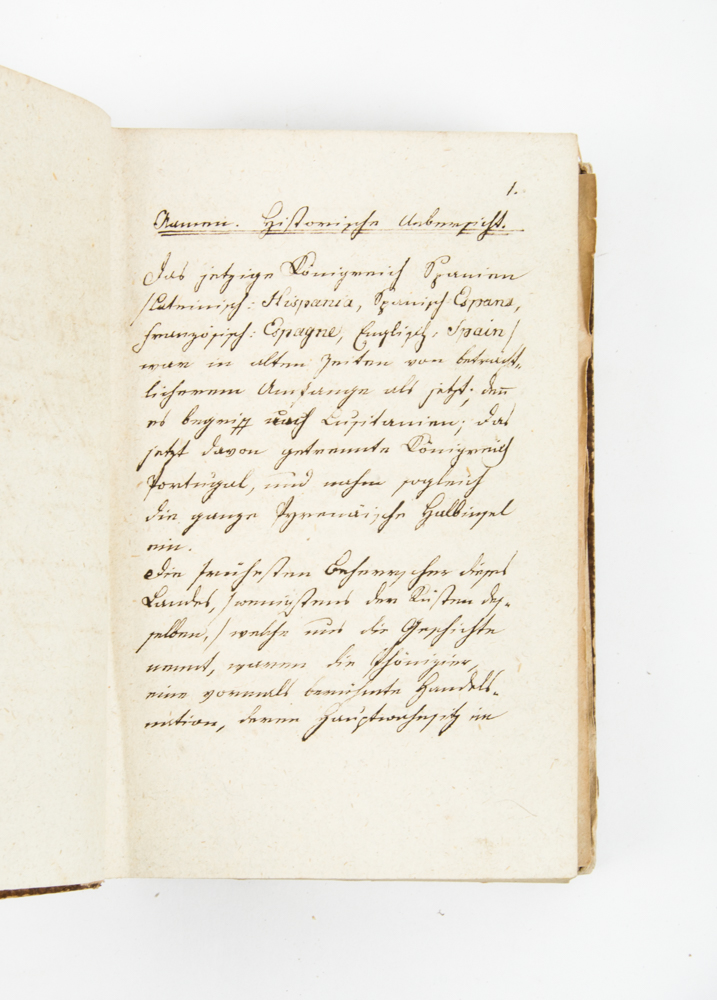 1.
Namen. Historische Uebersicht.
Das jetzige Königreich Spanien
/:Lateinisch: Hispania, Spanisch Espana,
französisch: Espagne, Englisch: Spain/
war in alten Zeiten von beträcht-
licherem Umfange als jetzt; den̅
es begriff auch Lusitanien, das
jetzt davon getrennte Königreich
Portugal, und nahm sogleich
die ganze Pyrenäische Halbinsel
ein.
Die frühesten Beherrscher dieses
Landes, /wenigstens der Küsten des-
selben,/ welche uns die Geschichte
nennt, waren die Phönizier,
eine vormals berühmte Handels-
nation, deren Hauptwohnsitz im